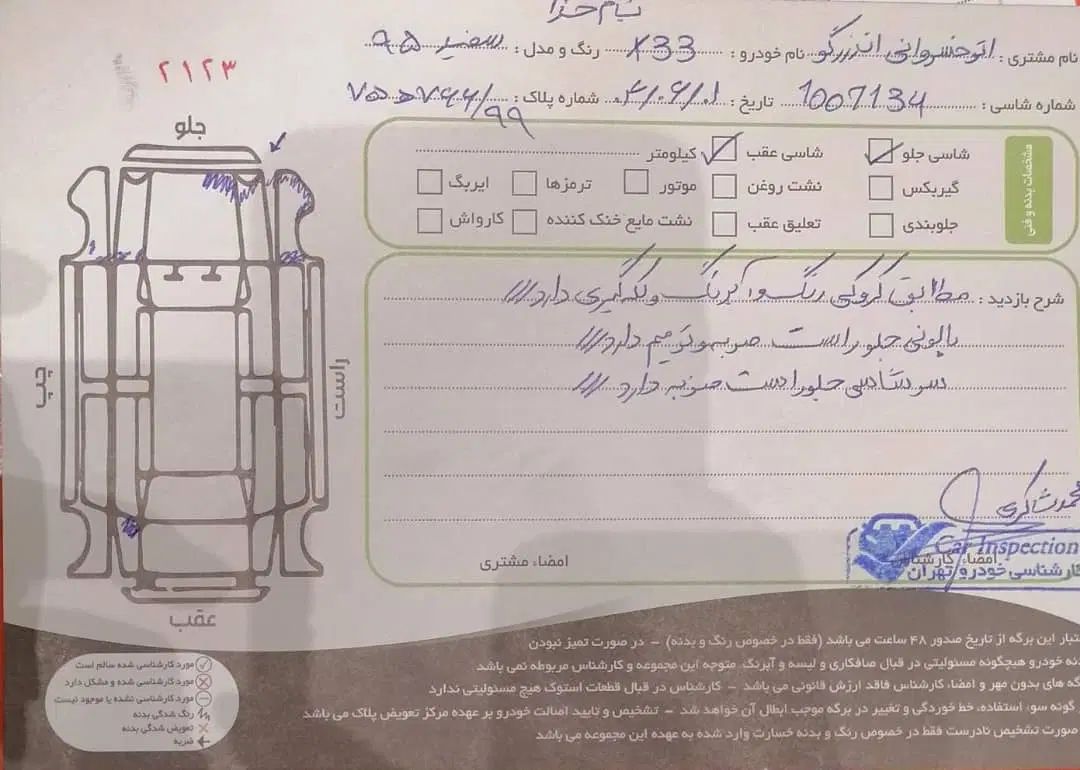 بنام خدا
نام مشتری : نام خودرو : X33 رنگ و مدل : سفید ۹۵
۲۱۲۳
شماره شاسی : 1007134 تاریخ : ۴/۰۶/۰۱ شماره پلاک :
جلو
مشخصات بدنه و فنی
شاسی جلو شاسی عقب کیلومتر
گیربکس نشت روغن موتور ترمزها ایربگ
جلوبندی تعلیق عقب نشت مایع خنک کننده کارواش
شرح بازدید : مطابق کروکی رنگ و آبرنگ و لکه گیری دارد
پالونی جلو راست ضربه و ترمیم دارد
سر شاسی جلو راست ضربه دارد
چپ
راست
عقب
محمد شاکری
Car Inspection
امضاء کارشناس
کارشناسی خودرو تهران
امضاء مشتری
اعتبار این برگه از تاریخ صدور ۴۸ ساعت می باشد (فقط در خصوص رنگ و بدنه) - در صورت تمیز نبودن
بدنه خودرو هیچگونه مسئولیتی در قبال صافکاری و لیسه و آبرنگ متوجه این مجموعه و کارشناس مربوطه نمی باشد
گه های بدون مهر و امضاء کارشناس فاقد ارزش قانونی می باشد - کارشناس در قبال قطعات استوک هیچ مسئولیتی ندارد
گونه سوء استفاده، خط خوردگی و تغییر در برگه موجب ابطال آن خواهد شد - تشخیص و تایید اصالت خودرو بر عهده مرکز تعویض پلاک می باشد
صورت تشخیص نادرست فقط در خصوص رنگ و بدنه خسارت وارد شده به عهده این مجموعه می باشد
مورد کارشناسی شده سالم است
مورد کارشناسی شده و مشکل دارد
مورد کارشناسی نشده یا موجود نیست
رنگ شدگی بدنه
تعویض شدگی بدنه
ضربه